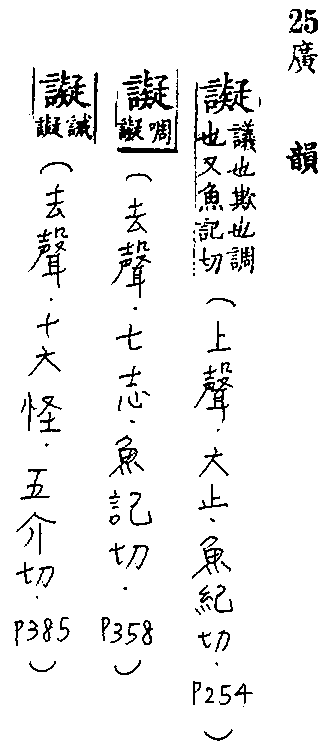 25
廣韻
譺 議也欺也調
也又魚記切
(上聲.六止.魚紀切.P254)
譺 啁
譺
(去聲.七志.魚記切.P358)
譺 譺
誡
(去聲.十六怪.五介切.P385)